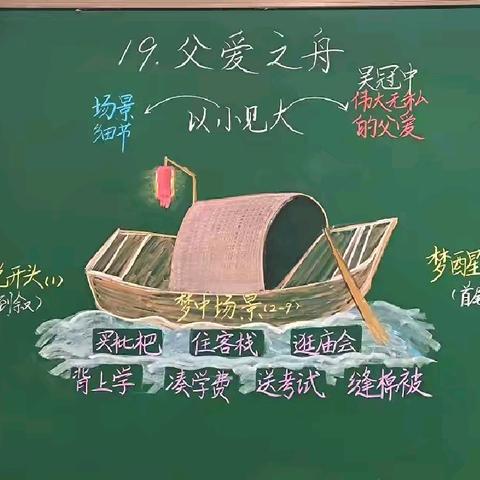 19.父爱之舟
吴冠中
场景
细节
以小见大
伟大无私
的父爱
开头(1)
倒叙)
梦中场景(2-9)
梦醒
(首
买枇杷 住客栈 逛庙会
背上学 凑学费 送考试 缝棉被